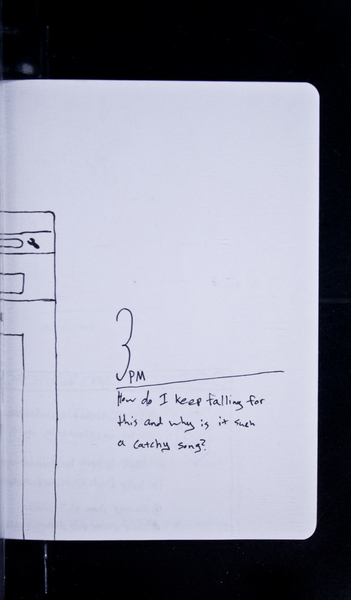 3
PM
How do I keep falling for
this and why is it such
a catchy song?